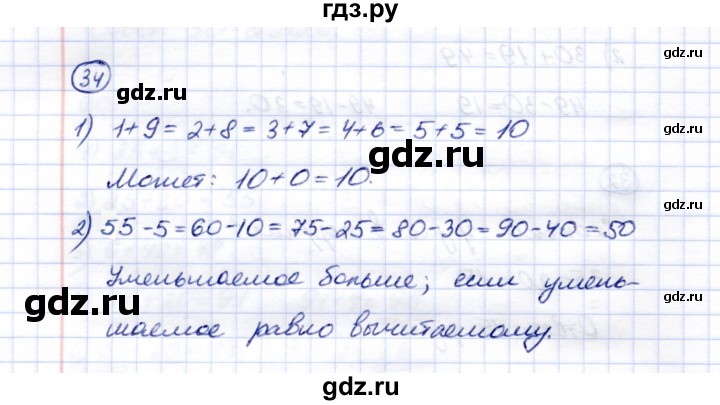 гдз.ру
34
1) 1+9=2+8=3+7=4+6=5+5=10
Может: 10+0=10.
2) 55-5=60-10=75-25=80-30=90-40=50
Уменьшаемое больше; если умень-
шаемое равно вычитаемому.
gdz.ru
gdz.ru
gdz.ru
gdz.ru
gdz.ru
gdz.ru
gdz.ru
gdz.ru